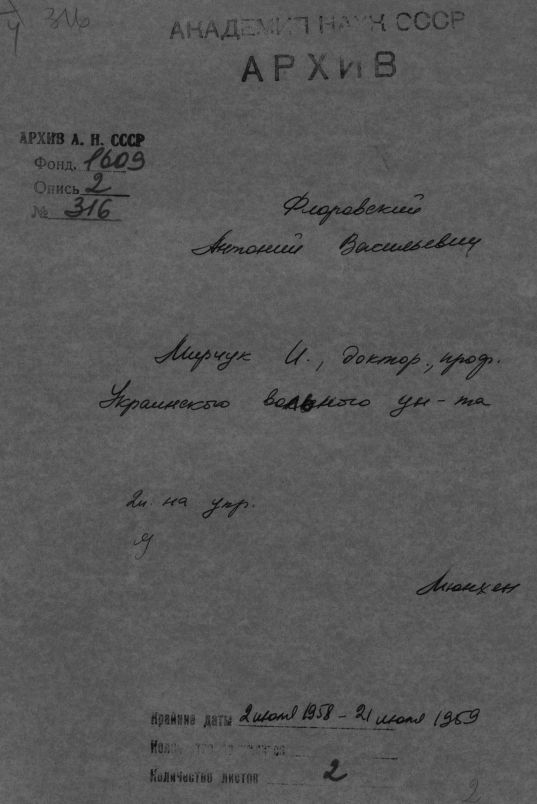 316
АКАДЕМИЯ НАУК СССР
АРХИВ
АРХИВ А. Н. СССР
Фонд. 1609
Опись 2
№ 316
Флоровский
Антоний Васильевич
Мирчук И., доктор, проф.
Украинского вольного ун-та
2п. на укр.
Мюнхен
Крайние даты 2 июля 1958 – 21 июля 1959
Количество
Количество листов 2
2